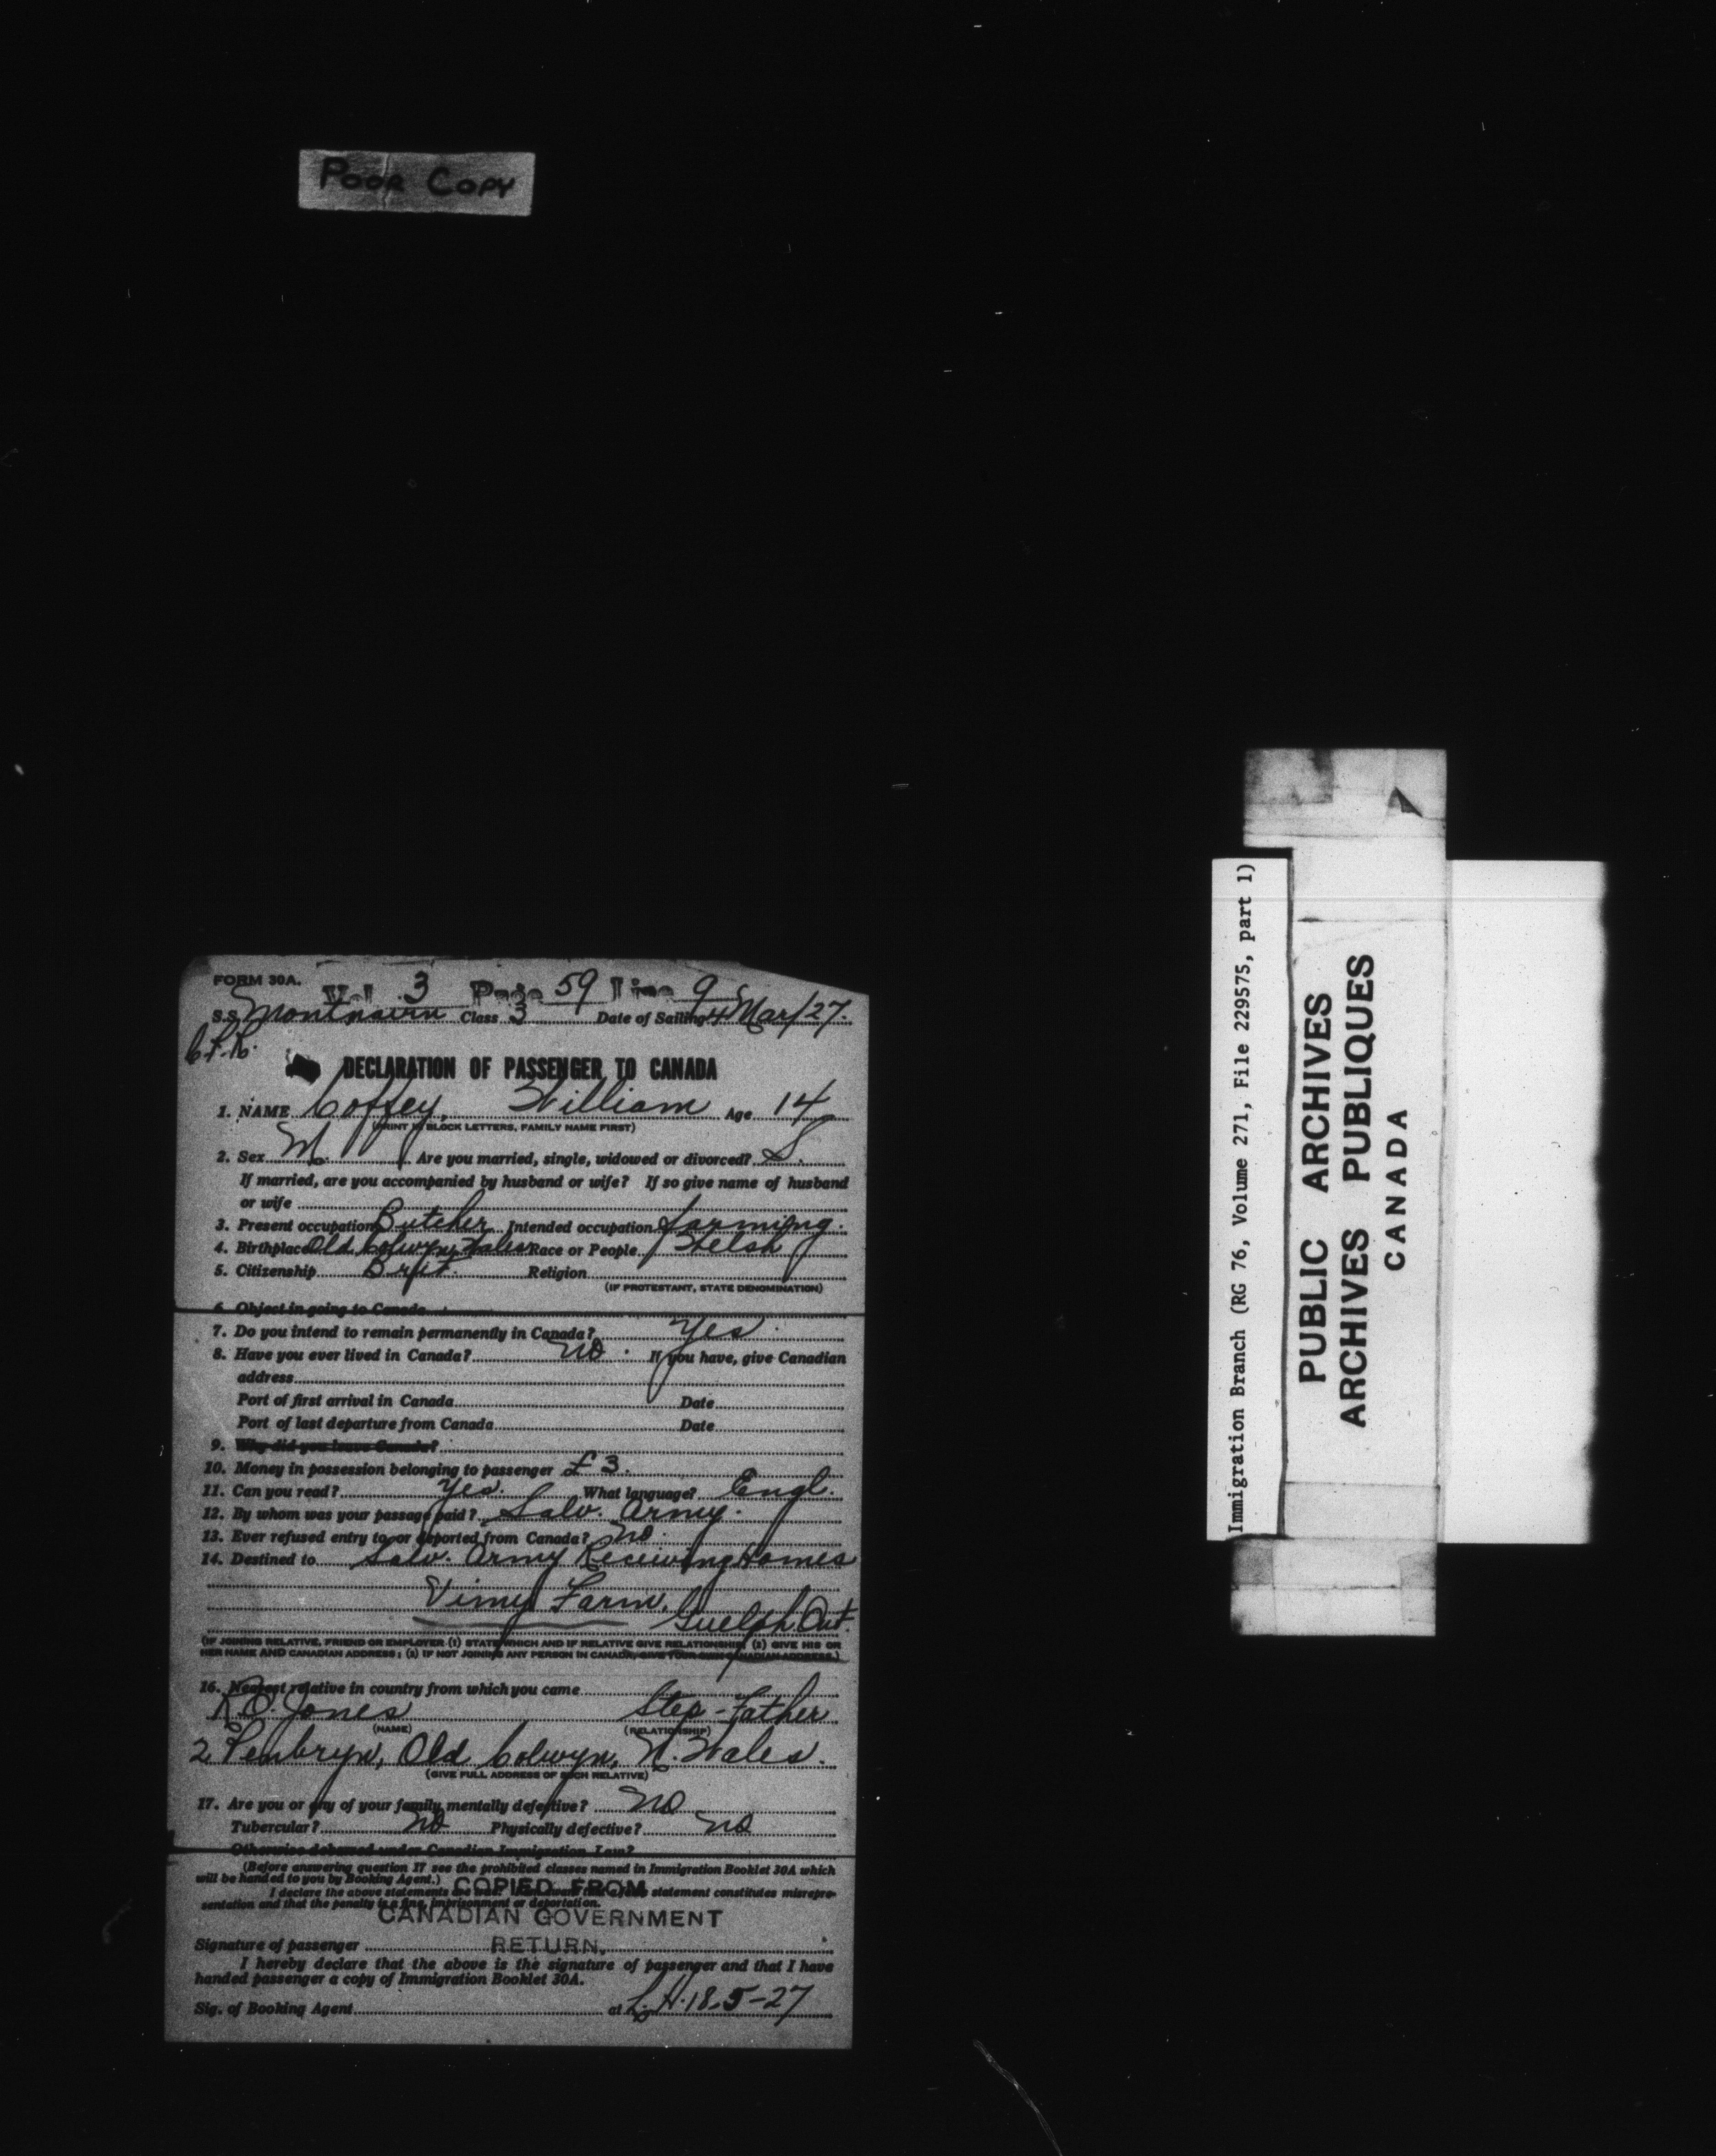 POOR COPY
FORM 30A.
Vol 3 Page 59 Line 9
S.S. Montnairn Class 3 Date of Sailing 4 Mar/27.
DECLARATION OF PASSENGER TO CANADA
1. NAME Coffey, William Age 14
(PRINT IN BLOCK LETTERS, FAMILY NAME FIRST)
2. Sex M. Are you married, single, widowed or divorced? S.
If married, are you accompanied by husband or wife? If so give name of husband
or wife
3. Present occupation Butcher Intended occupation farming.
4. Birthplace Old Colwyn, Wales Race or People Welsh
5. Citizenship Brit. Religion
(IF PROTESTANT, STATE DENOMINATION)
6. Object in going to Canada
7. Do you intend to remain permanently in Canada? Yes.
8. Have you ever lived in Canada? No. If you have, give Canadian
address
Port of first arrival in Canada Date
Port of last departure from Canada Date
9. Why did you leave Canada?
10. Money in possession belonging to passenger £3.
11. Can you read? Yes. What language? Engl.
12. By whom was your passage paid? Salv. Army.
13. Ever refused entry to or deported from Canada? No.
14. Destined to Salv. Army Receiving Homes
Vimy Farm.
Guelph Ont.
(IF JOINING RELATIVE, FRIEND OR EMPLOYER (1) STATE WHICH AND IF RELATIVE GIVE RELATIONSHIP; (2) GIVE HIS OR
HER NAME AND CANADIAN ADDRESS; (3) IF NOT JOINING ANY PERSON IN CANADA, GIVE YOUR OWN CANADIAN ADDRESS.)
16. Nearest relative in country from which you came
R.O. Jones Step-Father
(NAME) (RELATIONSHIP)
2 Penbryn, Old Colwyn, N. Wales.
(GIVE FULL ADDRESS OF SUCH RELATIVE)
17. Are you or any of your family mentally defective? No
Tubercular? No Physically defective? No
Otherwise debarred under Canadian Immigration Law?
(Before answering question 17 see the prohibited classes named in Immigration Booklet 30A which
will be handed to you by Booking Agent.)
I declare the above statements are true. I am aware that a false statement constitutes misrepre-
sentation and that the penalty is a fine, imprisonment or deportation.
COPIED FROM
CANADIAN GOVERNMENT
RETURN.
Signature of passenger
I hereby declare that the above is the signature of passenger and that I have
handed passenger a copy of Immigration Booklet 30A.
Sig. of Booking Agent at L.H. 18-5-27
Immigration Branch (RG 76, Volume 271, File 229575, part 1)
PUBLIC ARCHIVES
ARCHIVES PUBLIQUES
CANADA